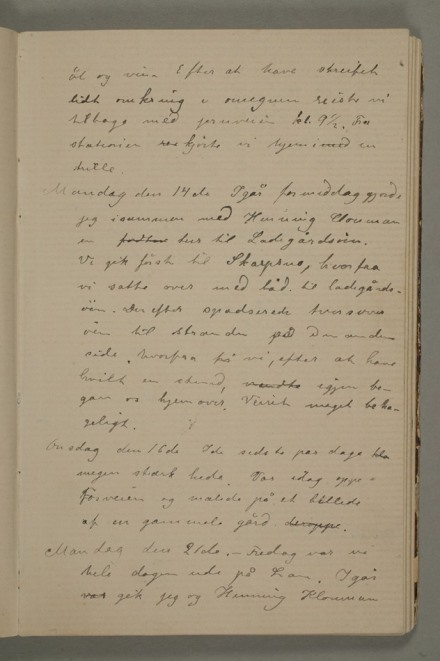 öl og vin. Efter at have streifet
lidt omkring i omegnen reiste vi
tilbage med jernveien kl. 9½. Fra
stationen kjörte vi hjem i med en
trille.
Mandag den 14de Igår formiddag gjorde
jeg isammen med Henning Klouman
en fodtur tur til Ladegårdsöen.
Vi gik först til Skarpsno, hvorfra
vi satte over med båd til ladegårds-
öen. Derefter spadserede tversover
öen til stranden på den anden
side, hvorfra vi, efter at have
hvilt en stund, vendte igjen be-
gav os hjemover. Veiret meget beha-
geligt.
Onsdag den 16de De sidste par dage
megen stærk hede. Var idag oppe
Frisveien og malede på et billede
af en gammel gård deroppe.
Mandag den 21de. – Fredag var vi
hele dagen ude på Lian. Igår
var gik jeg og Henning Klouman